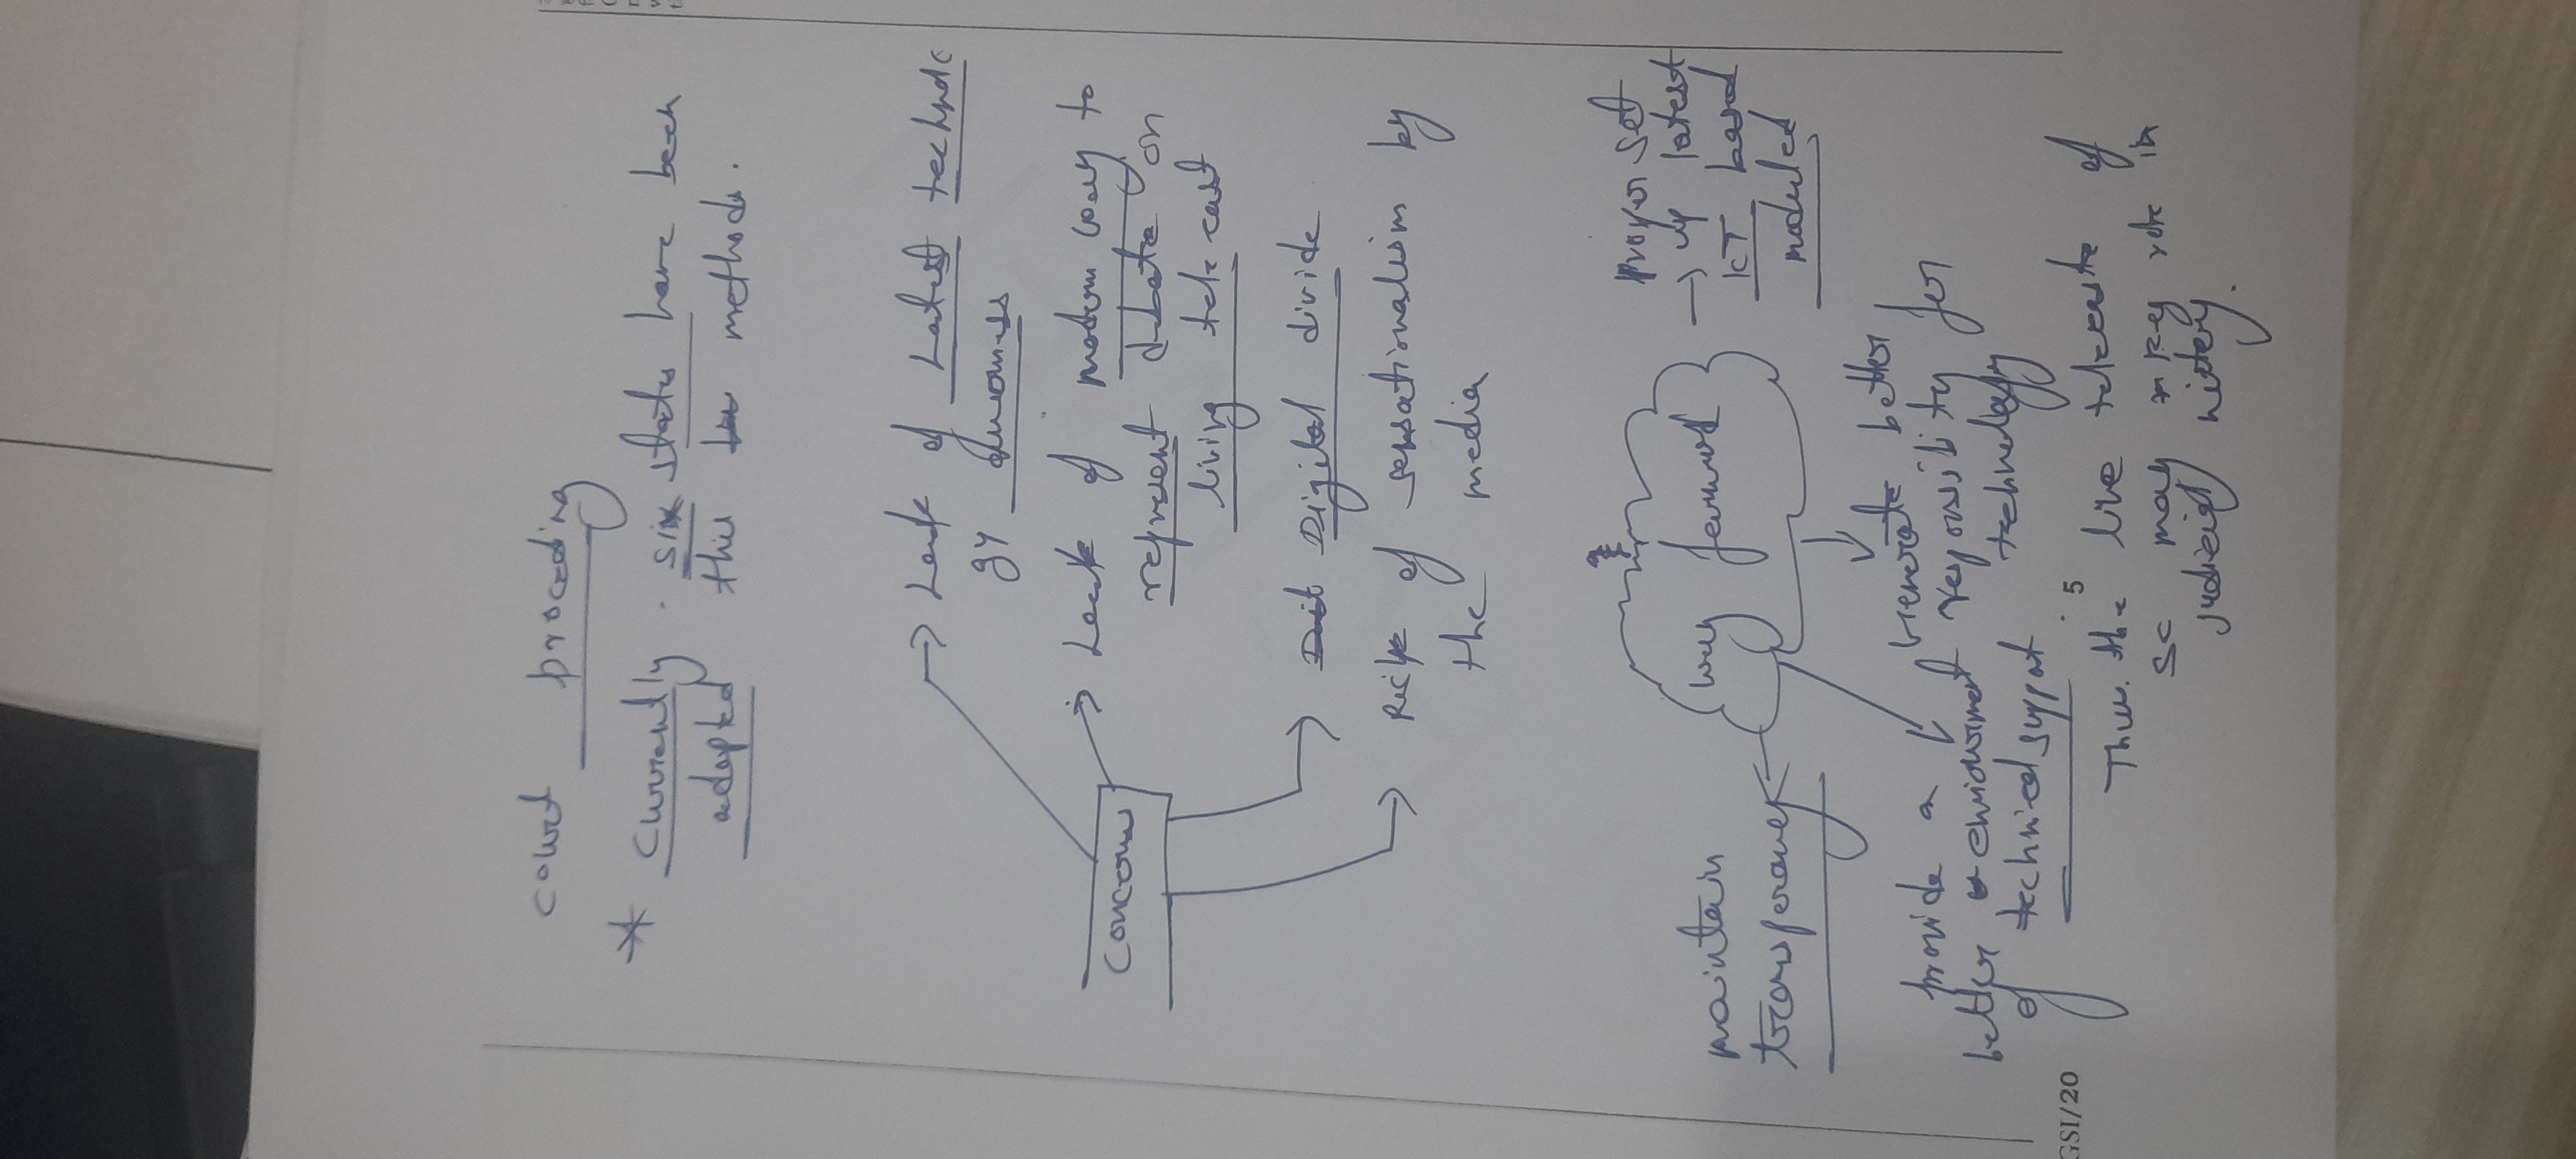 court proceeding
* Currently. six states have been
adopted this methods.
→ Lack of Latest technolo
gy
→ Lack of modern way to
represent debate on
living tele cast
Digital divide
Risk of sensationalism by
the media
Concerns
way forward
Proper set
→ up latest
ICT based
moduled
maintain
transparancy
better
responsibility for
technology
provide a
better environment
of technical support
5
Thus. the live telecaste of
SC may key role in
judiciary history.
GSI/20